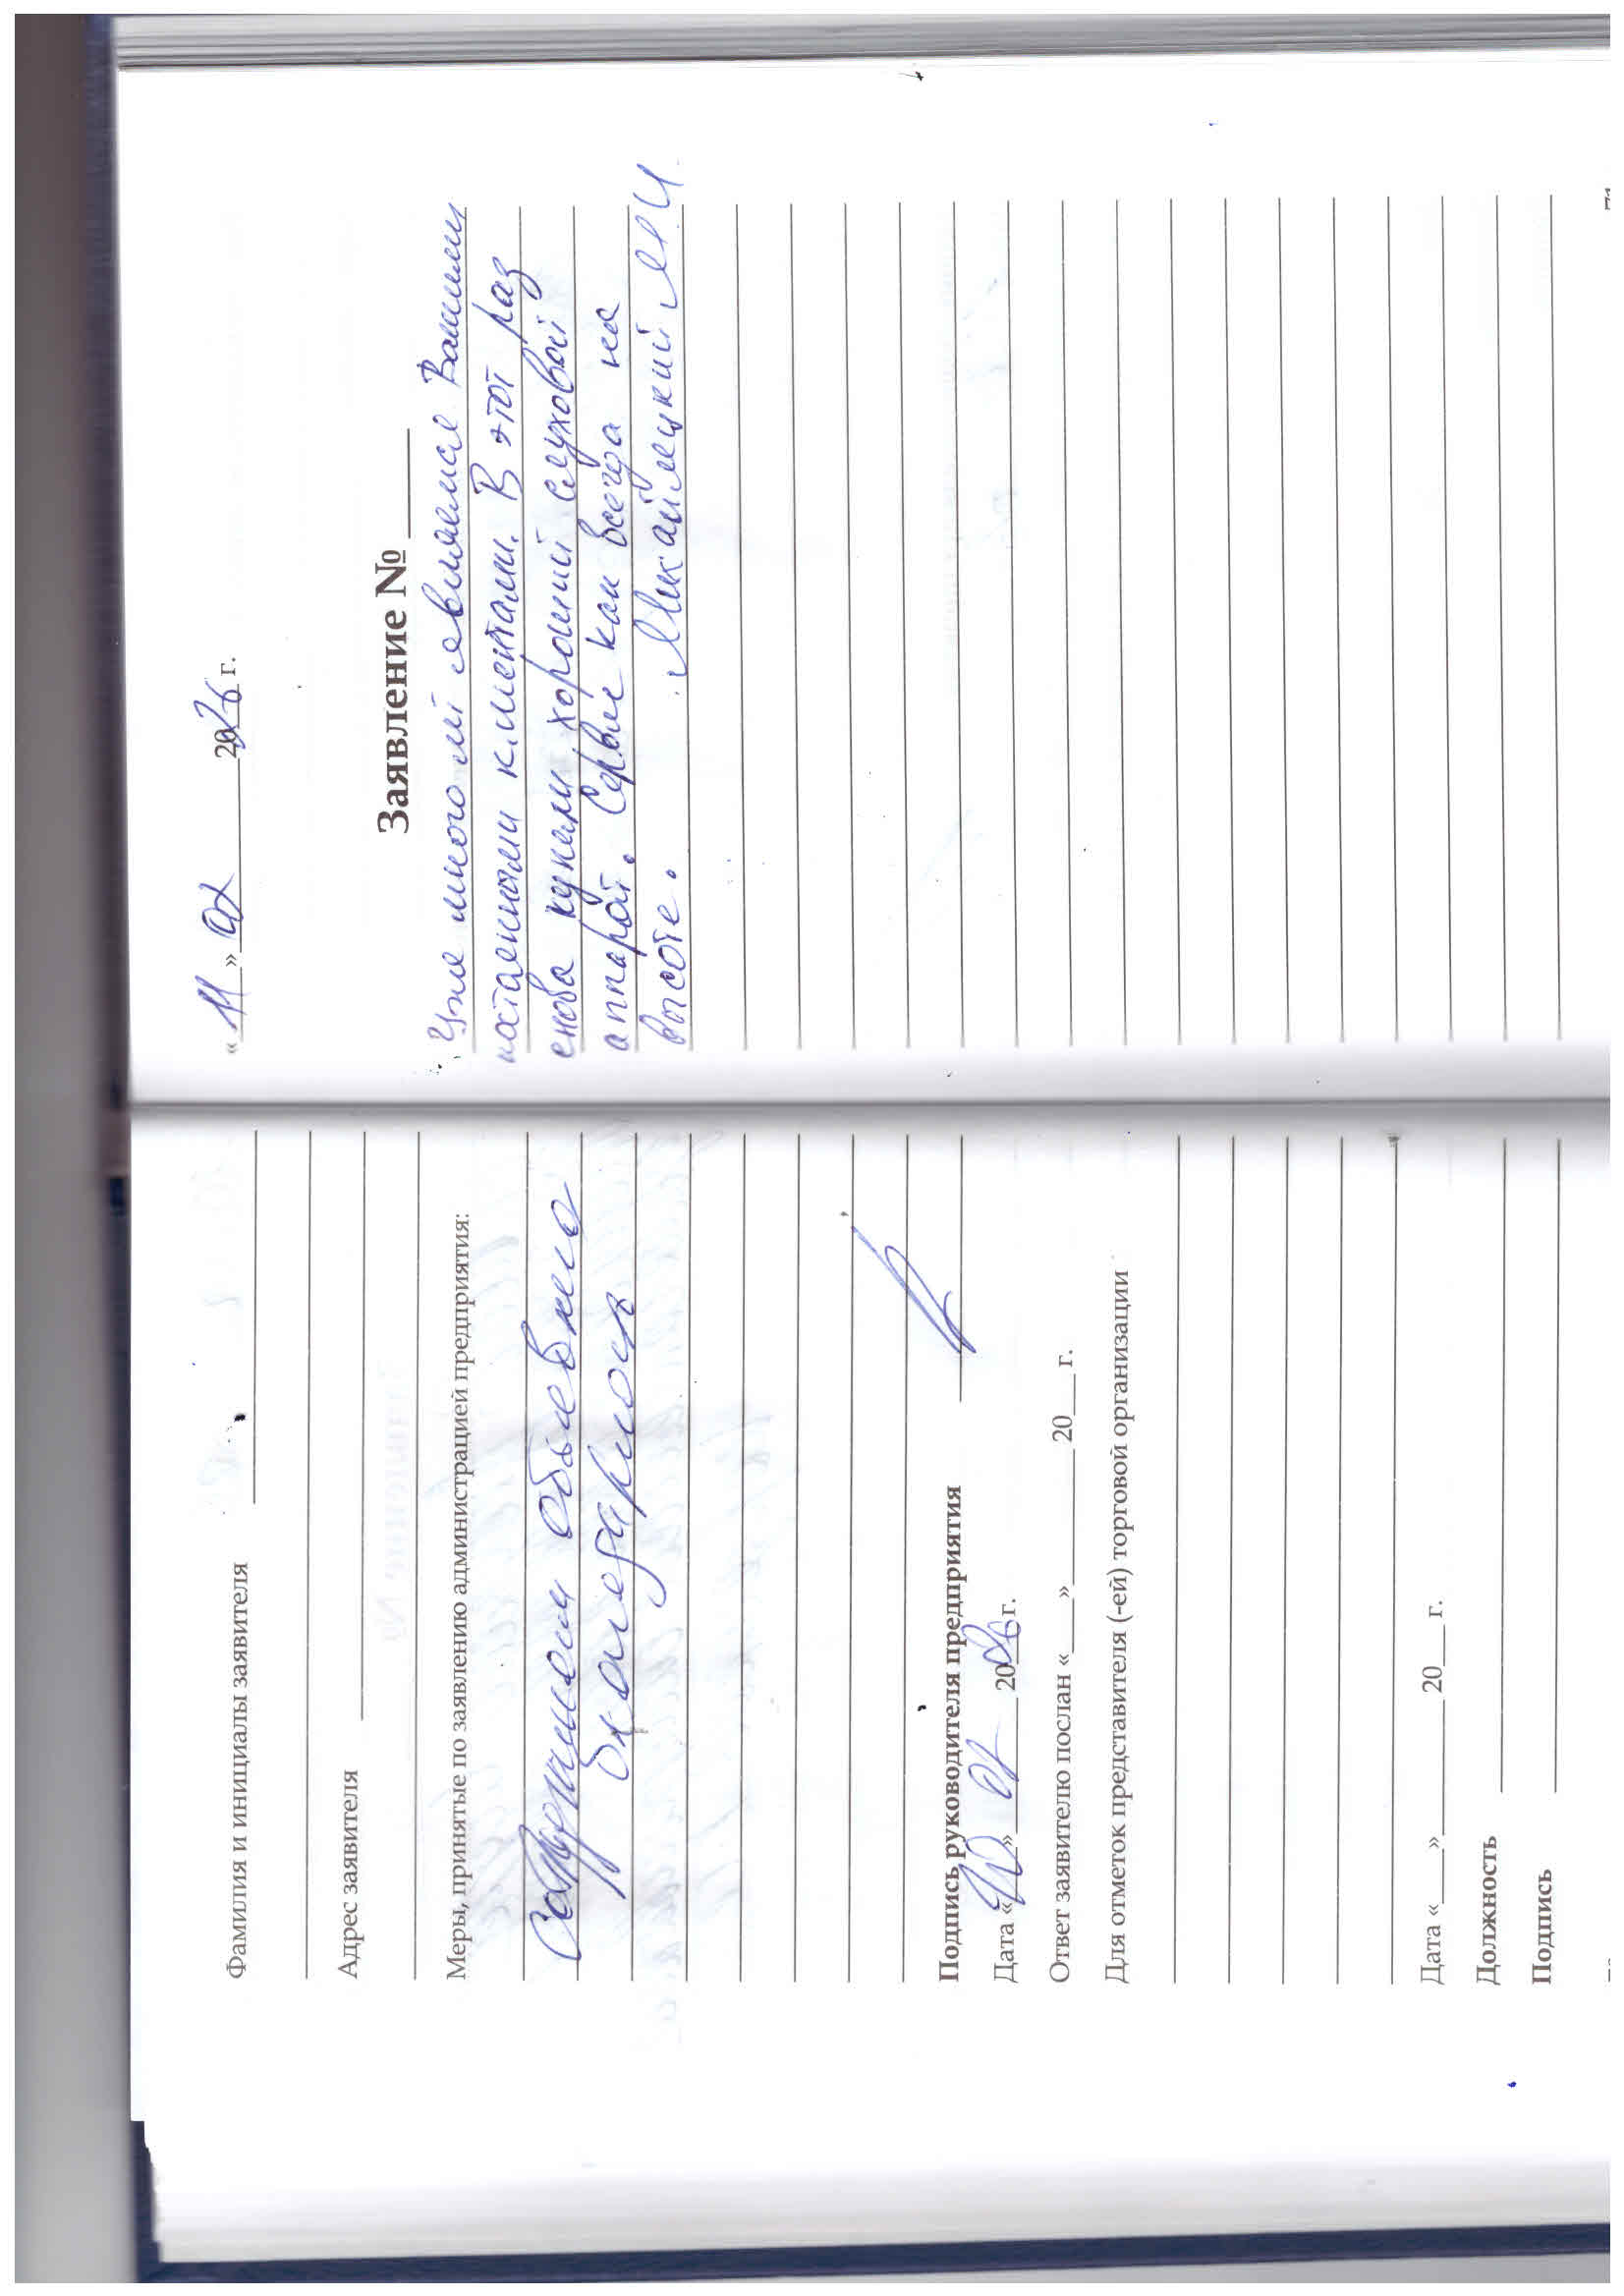 Фамилия и инициалы заявителя
Адрес заявителя
Меры, принятые по заявлению администрацией предприятия:
объявлена
благодарность
Подпись руководителя предприятия
Дата « » 2026 г.
Ответ заявителю послан « » 20 г.
Для отметок представителя (-ей) торговой организации
Дата « » 20 г.
Должность
Подпись
« 11 » 02 2026 г.
Заявление №
Уже много лет являемся Вашими
постоянными клиентами. В этот раз
снова купили хороший слуховой
аппарат. Сервис как всегда на
высоте.
71